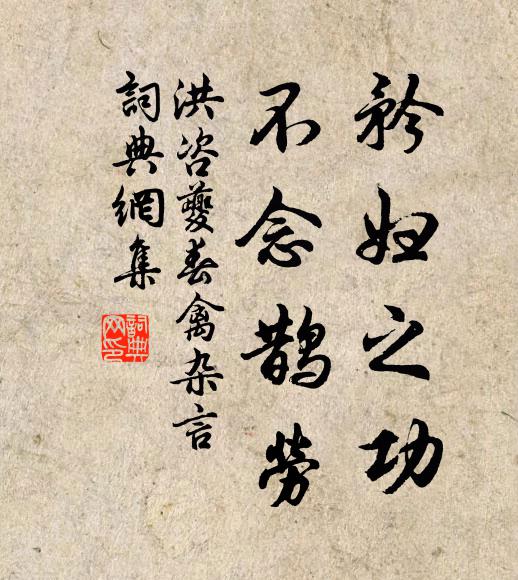 矜妇之功
不念鹊劳
洪咨夔春禽杂言
詞典網集
詞典网印